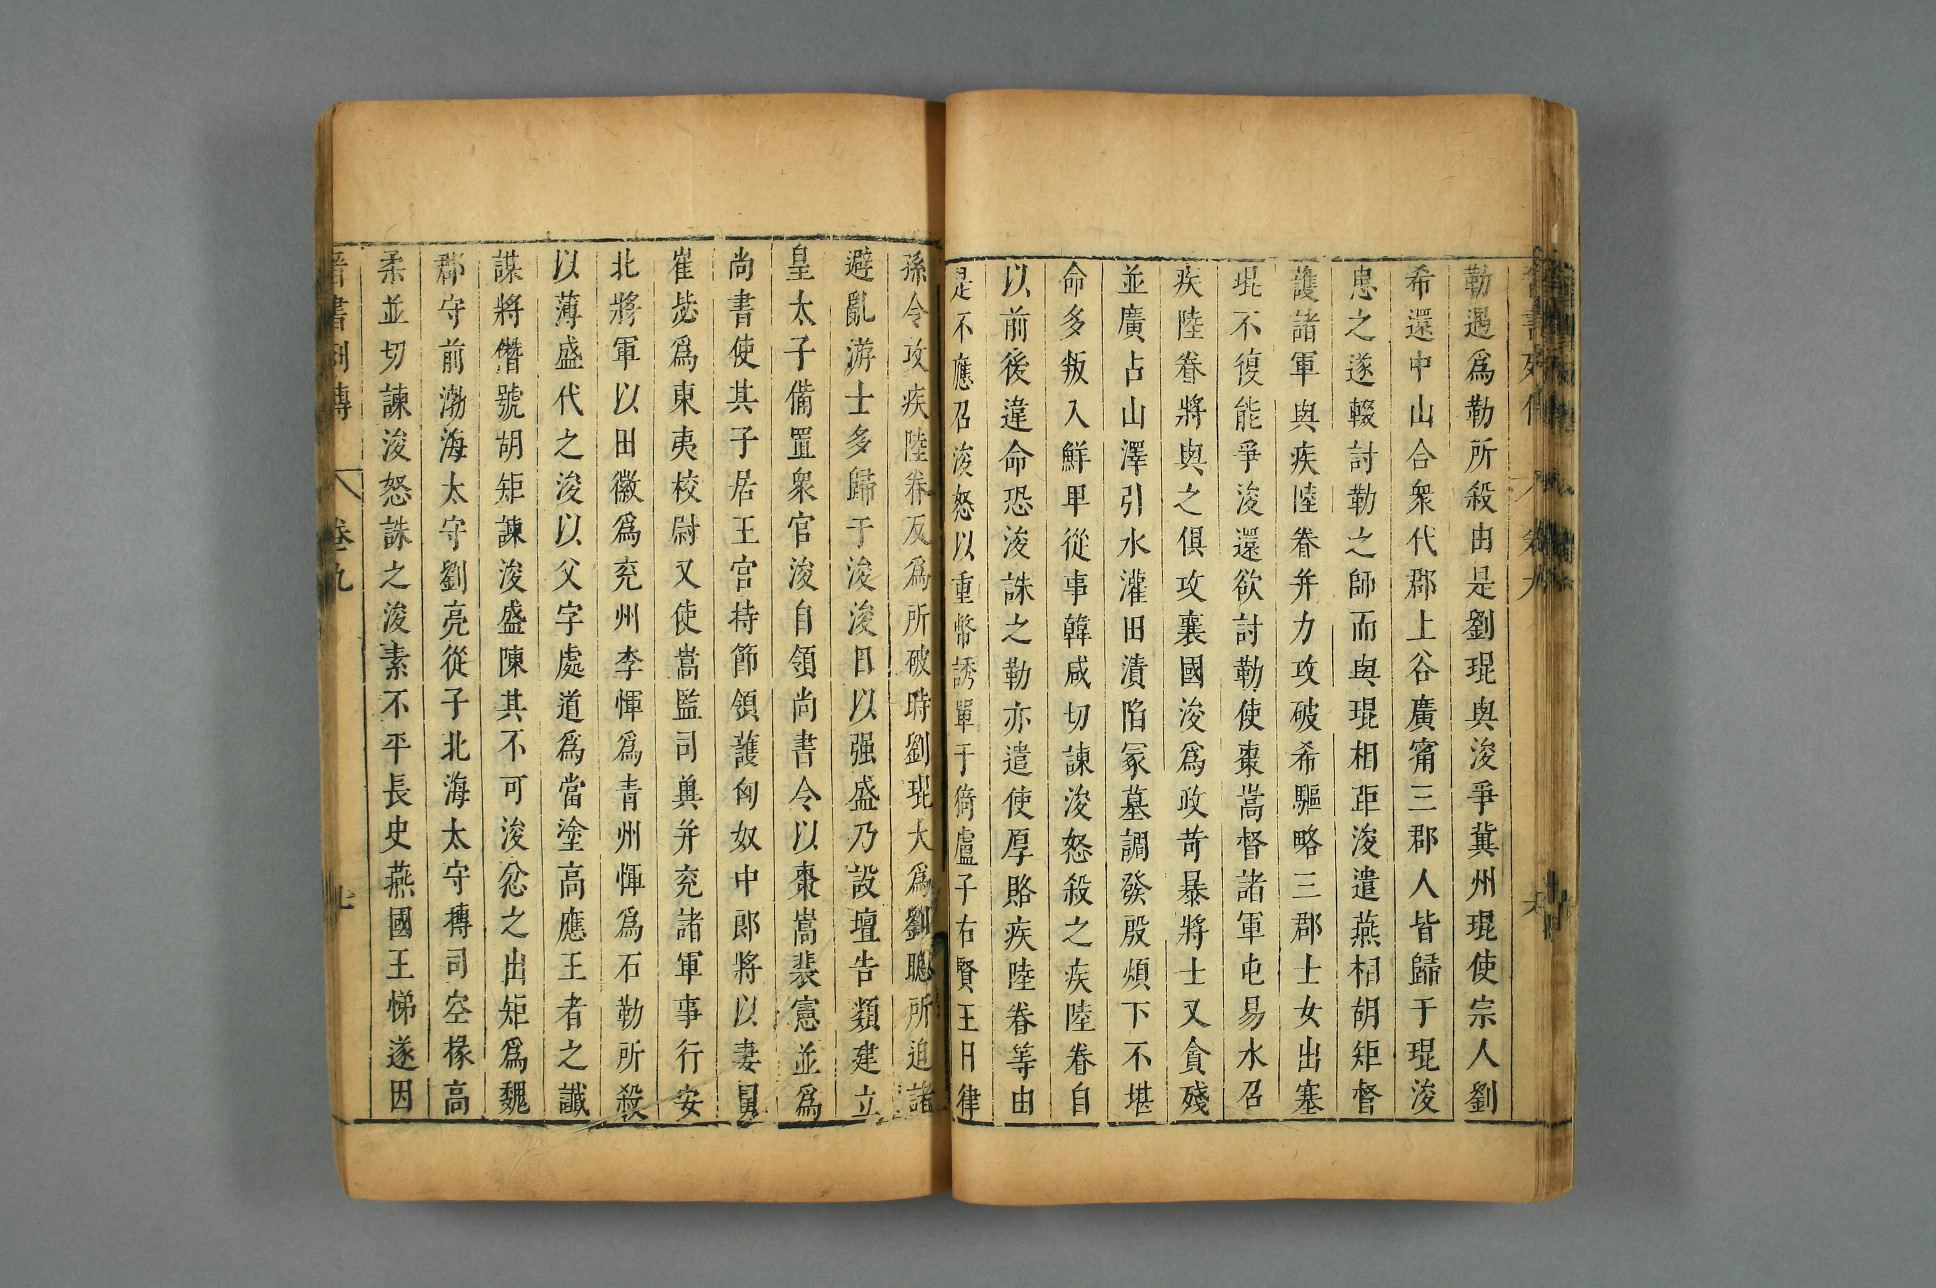 勒遇爲勒所殺由是劉琨與浚爭冀州琨使宗人劉
希還中山合衆代郡上谷廣甯三郡人皆歸于琨浚
患之遂輟討勒之師而與琨相距浚遣燕相胡矩督
護諸軍與疾陸眷并力攻破希驅略三郡士女出塞
琨不復能爭浚還欲討勒使棗嵩督諸軍屯易水召
疾陸眷將與之俱攻襄國浚爲政苛暴將士又貪殘
並廣占山澤引水灌田漬陷冢墓調發殷煩下不堪
命多叛入鮮卑從事韓咸切諫浚怒殺之疾陸眷自
以前後違命恐浚誅之勒亦遣使厚賂疾陸眷等由
是不應召浚怒以重幣誘單于猗盧子右賢王日律
孫令攻疾陸眷反爲所破時劉琨大爲劉聰所迫諸
避亂游士多歸于浚浚日以强盛乃設壇告類建立
皇太子備置衆官浚自領尚書令以棗嵩裴憲並爲
尚書使其子居王宮持節領護匈奴中郎將以妻舅
崔毖爲東夷校尉又使嵩監司冀并兖諸軍事行安
北將軍以田徽爲兖州李惲爲青州惲爲石勒所殺
以薄盛代之浚以父字處道爲當塗高應王者之讖
謀將僭號胡矩諫浚盛陳其不可浚忿之出矩爲魏
郡守前渤海太守劉亮從子北海太守搏司空掾高
柔並切諫浚怒誅之浚素不平長史燕國王悌遂因
晉書列傳 卷九 七